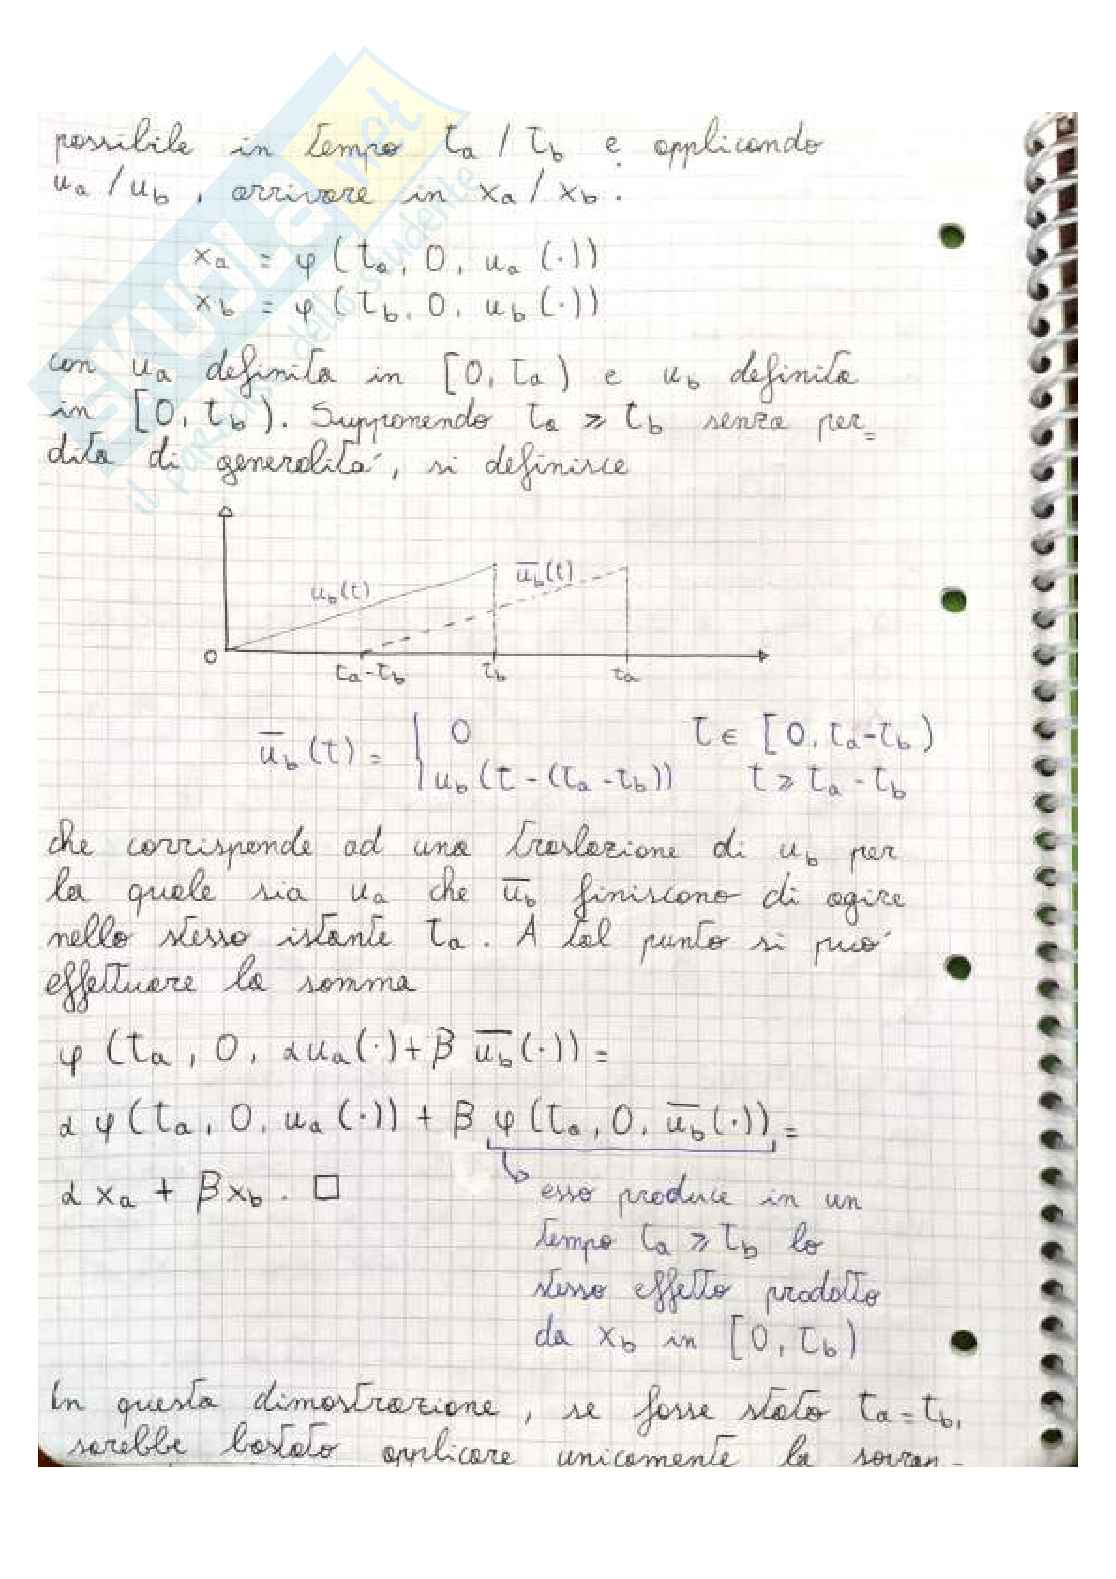 possibile in tempo ta / tb e applicando
ua / ub, arrivare in xa / xb.
xa = φ (ta, 0, ua (·))
xb = φ (tb, 0, ub (·))
con ua definita in [0, ta) e ub definita
in [0, tb). Supponendo ta ⩾ tb senza per=
dita di generalità, si definisce
ub(t)
ūb(t)
0
ta-tb
tb
ta
ūb(t) = { 0 t ∈ [0, ta-tb)
ub (t - (ta - tb)) t ⩾ ta - tb
che corrisponde ad una traslazione di ub per
la quale sia ua che ūb finiscono di agire
nello stesso istante ta. A tal punto si può
effettuare la somma
φ (ta, 0, αua(·) + β ūb(·)) =
α φ(ta, 0, ua(·)) + β φ(ta, 0, ūb(·)) =
α xa + β xb. □
esso produce in un
tempo ta ⩾ tb lo
stesso effetto prodotto
da xb in [0, tb)
In questa dimostrazione, se fosse stato ta = tb,
sarebbe bastato applicare unicamente la sovran-
SKUOLA.net
il portale dello studente